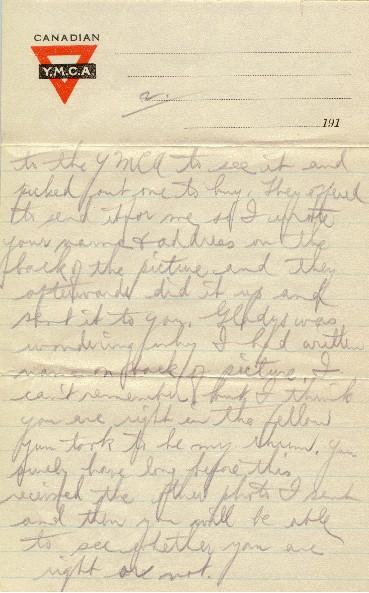 CANADIAN
Y.M.C.A
2.
191
to the YMCA to see it and
picked out one to buy. They offered
to send it for me so I wrote
your name & address on the
back of the picture and they
afterwards did it up and
sent it to you. Gladys was
wondering why I had written
name on back of picture. I
can't remember, but I think
you are right in the fellow
you took to be my chum. You
surely have long before this
received the other photo I sent
and then you will be able
to see whether you are
right or not.